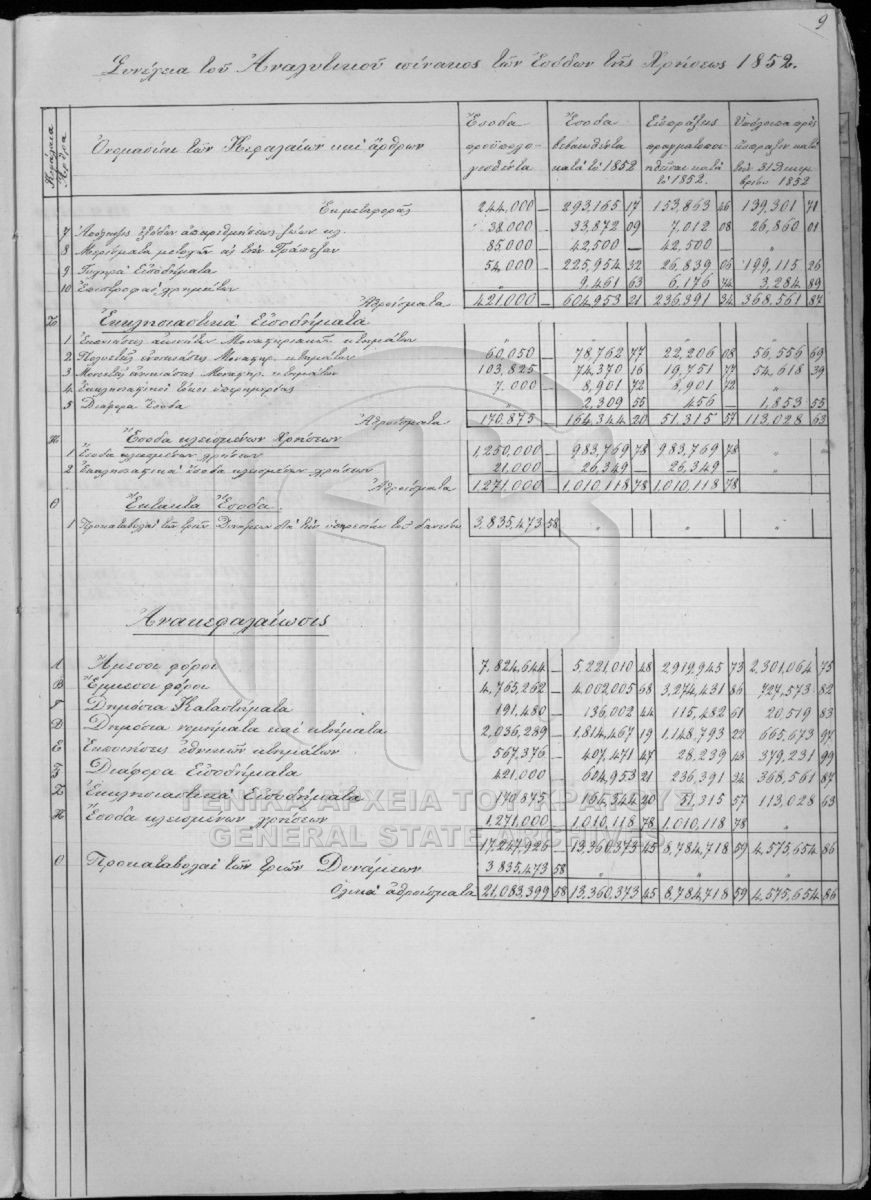 9
Συνέχεια τοῦ Ἀναλυτικοῦ πίνακος τῶν Ἐσόδων τῆς Χρήσεως 1852.
Κεφάλαια Ἄρθρα Ὀνομασίαι τῶν Κεφαλαίων καὶ ἄρθρων Ἔσοδα προϋπολογισθέντα Ἔσοδα βεβαιωθέντα κατὰ τὸ 1852 Εἰσπράξεις πραγματοποιηθεῖσαι κατὰ τὸ 1852. Ὑπόλοιπα πρὸς εἴσπραξιν κατὰ τὴν 31 Δεκεμβρίου 1852
Ἐκ μεταφορᾶς 244,000 — 293,165 17 153,863 46 139,301 71
7 Ἀπόληψις ἐξόδων 38,000 — 33,872 09 7,012 08 26,860 01
8 Μερίσματα μετοχῶν εἰς τὴν Τράπεζαν 85,000 — 42,500 — 42,500 — "
9 Τυχηρὰ Εἰσοδήματα 54,000 — 225,954 32 26,839 06 199,115 26
10 Ἐπιστροφαὶ χρημάτων " 9,461 63 6,176 74 3,284 89
Ἀθροίσματα 421,000 — 604,953 21 236,391 34 368,561 87
Ζ Ἐκκλησιαστικὰ Εἰσοδήματα
1 Ἐκποιήσεις ἀκινήτων Μοναστηριακῶν κτημάτων "
2 Πολυετεῖς ἐνοικιάσεις Μοναστηρ. κτημάτων 60,050 — 78,762 77 22,206 08 56,556 69
3 Μονοετεῖς ἐνοικιάσεις Μοναστηρ. κτημάτων 103,825 — 74,370 16 19,751 77 54,618 39
4 Ἐκκλησιαστικοὶ τόκοι ὑπερημερίας 7,000 — 8,901 72 8,901 72 "
5 Διάφορα Ἔσοδα " 2,309 55 456 — 1,853 55
Ἀθροίσματα 170,875 — 164,344 20 51,315 57 113,028 63
Η Ἔσοδα κλεισμένων Χρήσεων
1 Ἔσοδα κλεισμένων χρήσεων 1,250,000 — 983,769 78 983,769 78 "
2 Ἐκκλησιαστικὰ ἔσοδα κλεισμένων χρήσεων 21,000 — 26,349 — 26,349 — "
Ἀθροίσματα 1,271,000 — 1,010,118 78 1,010,118 78
Θ Ἔκτακτα Ἔσοδα.
1 Προκαταβολαὶ τῶν τριῶν Δυνάμεων διὰ τὴν ὑπηρεσίαν τοῦ δανείου 3,835,473 58 " " "
Ἀνακεφαλαίωσις
Α Ἄμεσοι φόροι 7,824,644 — 5,221,010 48 2,919,945 73 2,301,064 75
Β Ἔμμεσοι φόροι 4,765,262 — 4,002,005 68 3,274,431 86 727,573 82
Γ Δημόσια Καταστήματα 191,480 — 136,002 44 115,482 61 20,519 83
Δ Δημόσια νομήματα καὶ κτήματα 2,036,289 — 1,814,467 19 1,148,793 22 665,673 97
Ε Ἐκποιήσεις ἐθνικῶν κτημάτων 567,376 — 407,471 47 28,239 48 379,231 99
Ϛ Διάφορα Εἰσοδήματα 421,000 — 604,953 21 236,391 34 368,561 87
Ζ Ἐκκλησιαστικὰ Εἰσοδήματα 170,875 — 164,344 20 51,315 57 113,028 63
Η Ἔσοδα κλεισμένων χρήσεων 1,271,000 — 1,010,118 78 1,010,118 78 "
17,247,926 — 13,360,373 45 8,784,718 59 4,575,654 86
Θ Προκαταβολαὶ τῶν τριῶν Δυνάμεων 3,835,473 58 " " "
Ὁλικὰ ἀθροίσματα 21,083,399 58 13,360,373 45 8,784,718 59 4,575,654 86
ΓΕΝΙΚΑ ΑΡΧΕΙΑ ΤΟΥ ΚΡΑΤΟΥΣ
GENERAL STATE ARCHIVES